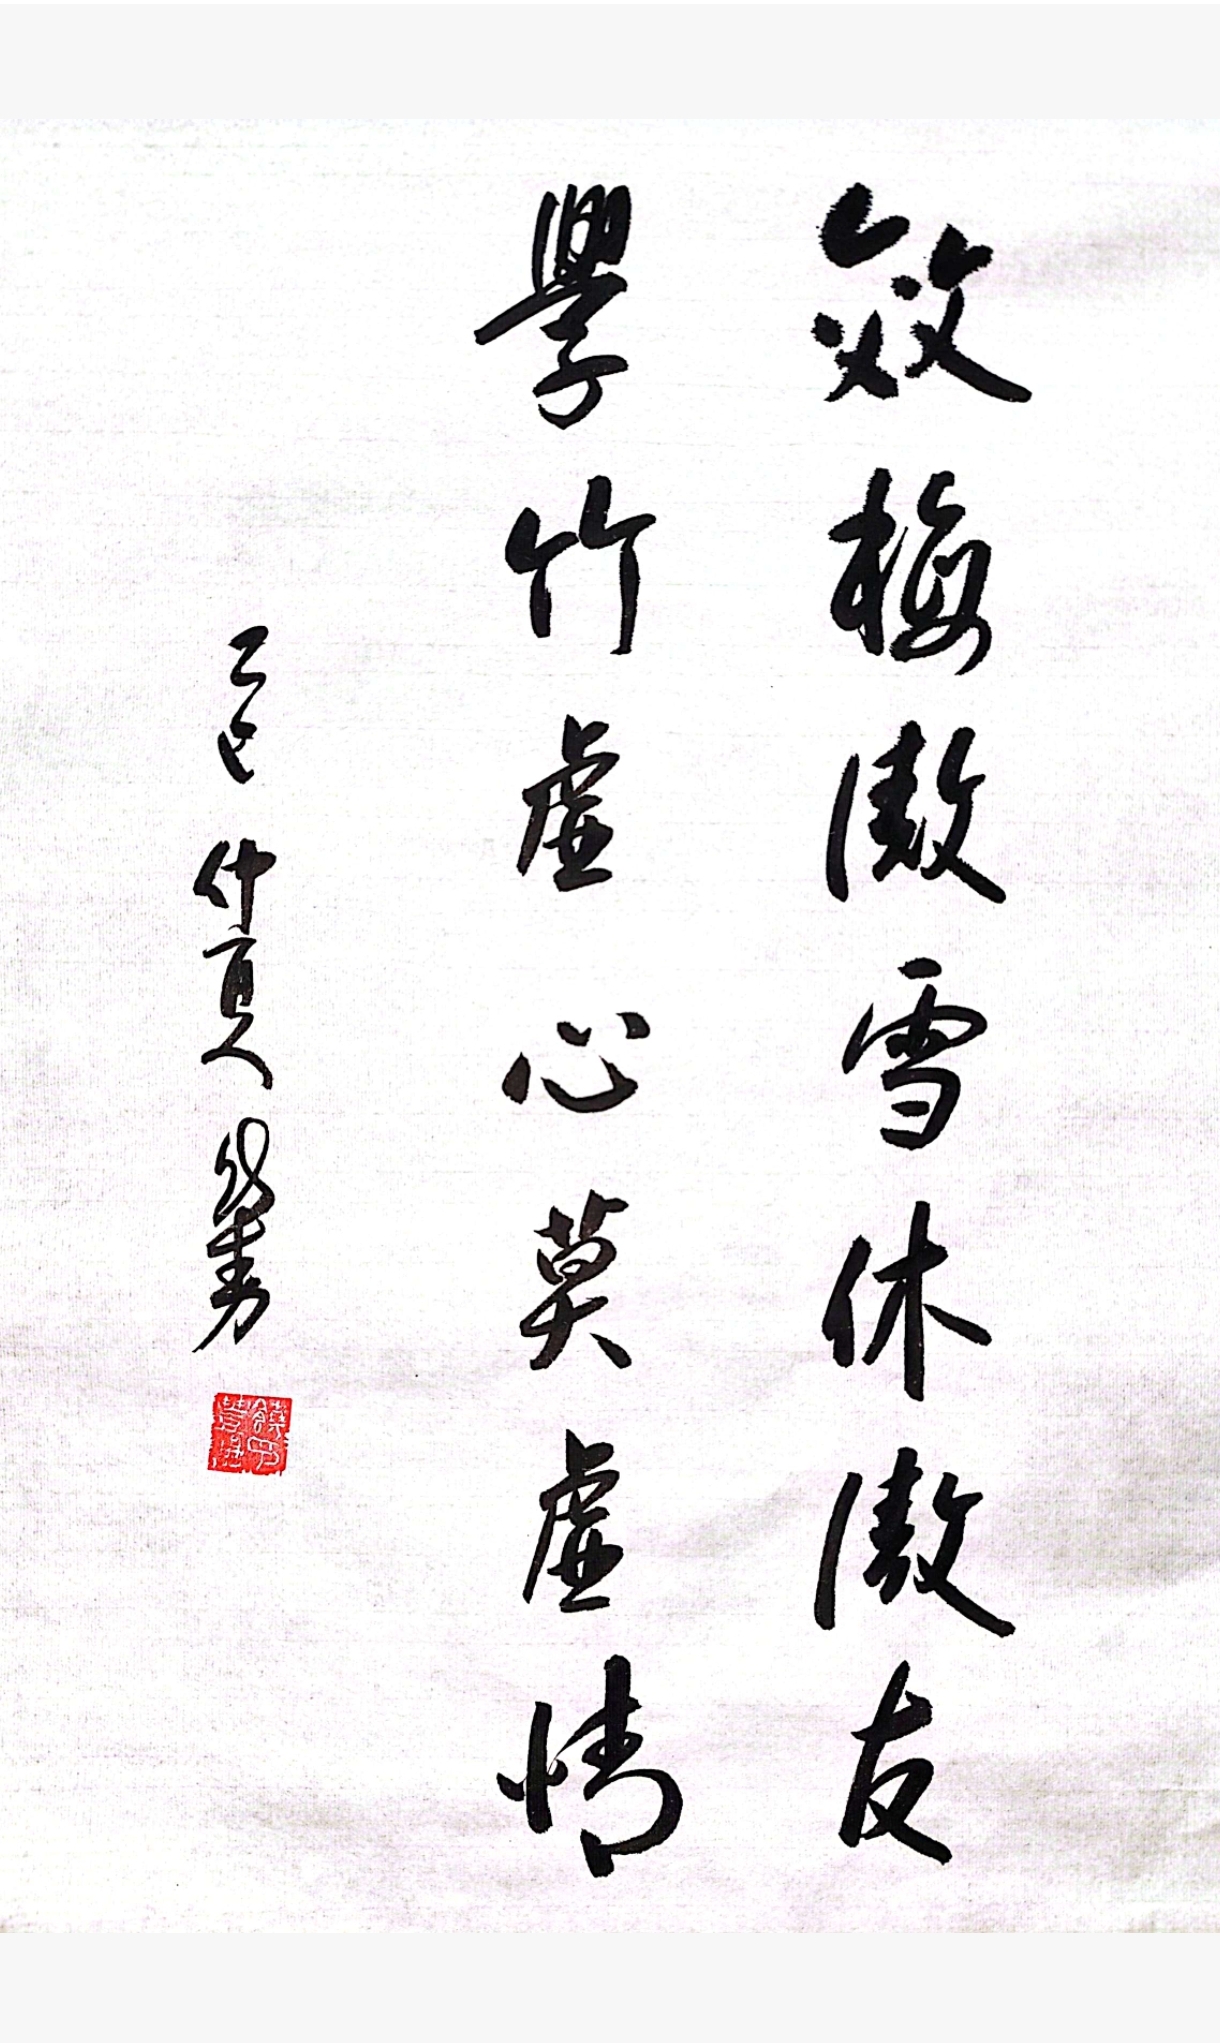 效梅傲雪休傲友
學竹虛心莫虛情
乙巳仲夏